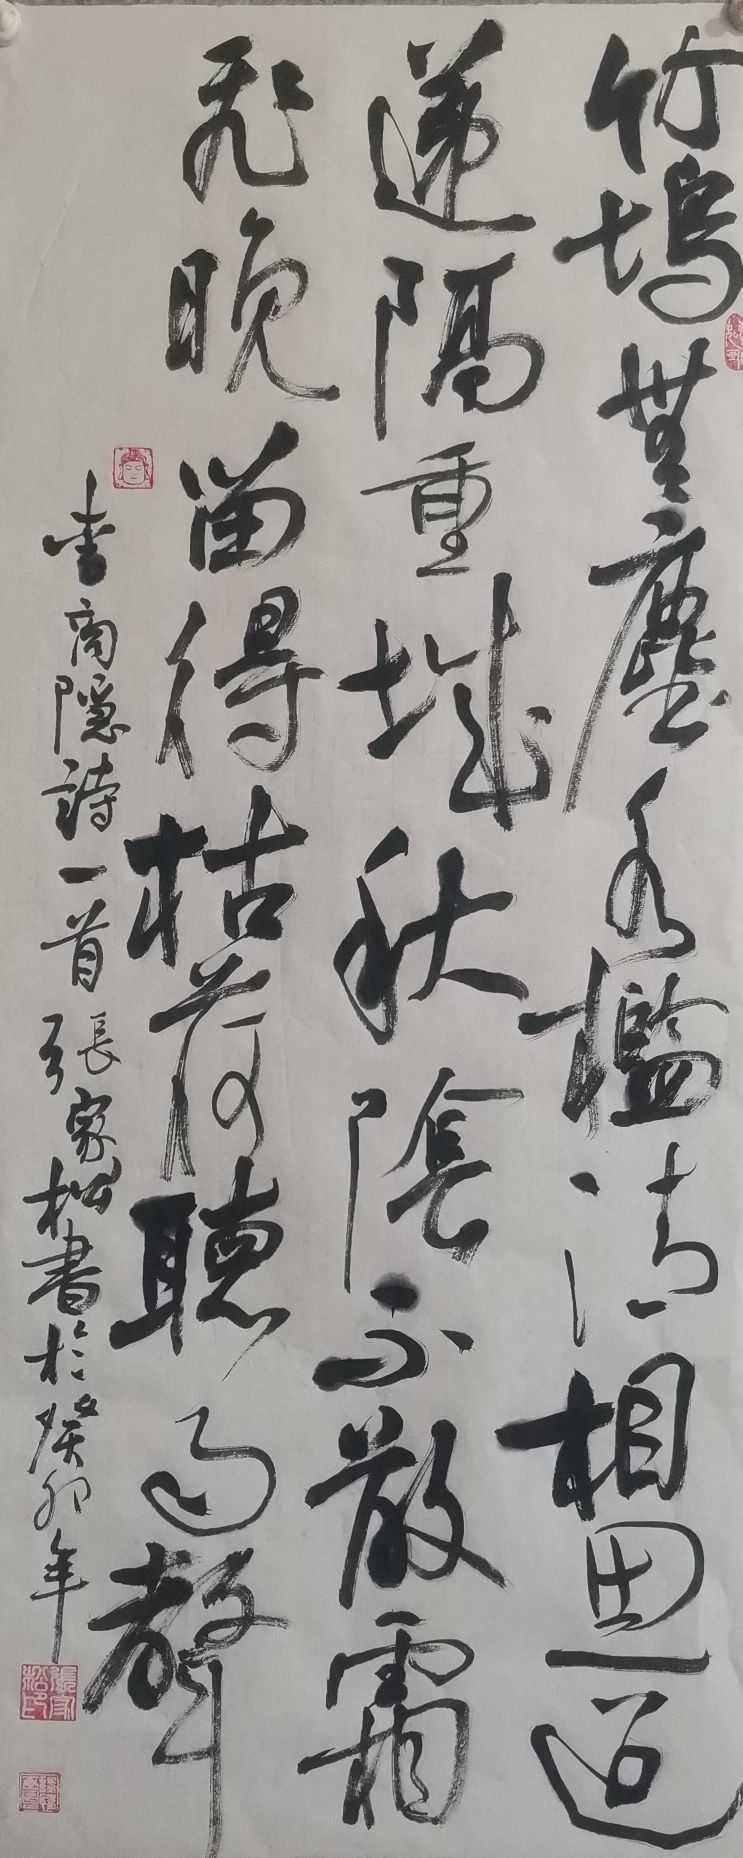 竹塢無塵水檻清相思迢
遞隔重城秋陰不散霜
飛晚留得枯荷聽雨聲
書商隱詩一首張家松書於癸卯年
張家松印